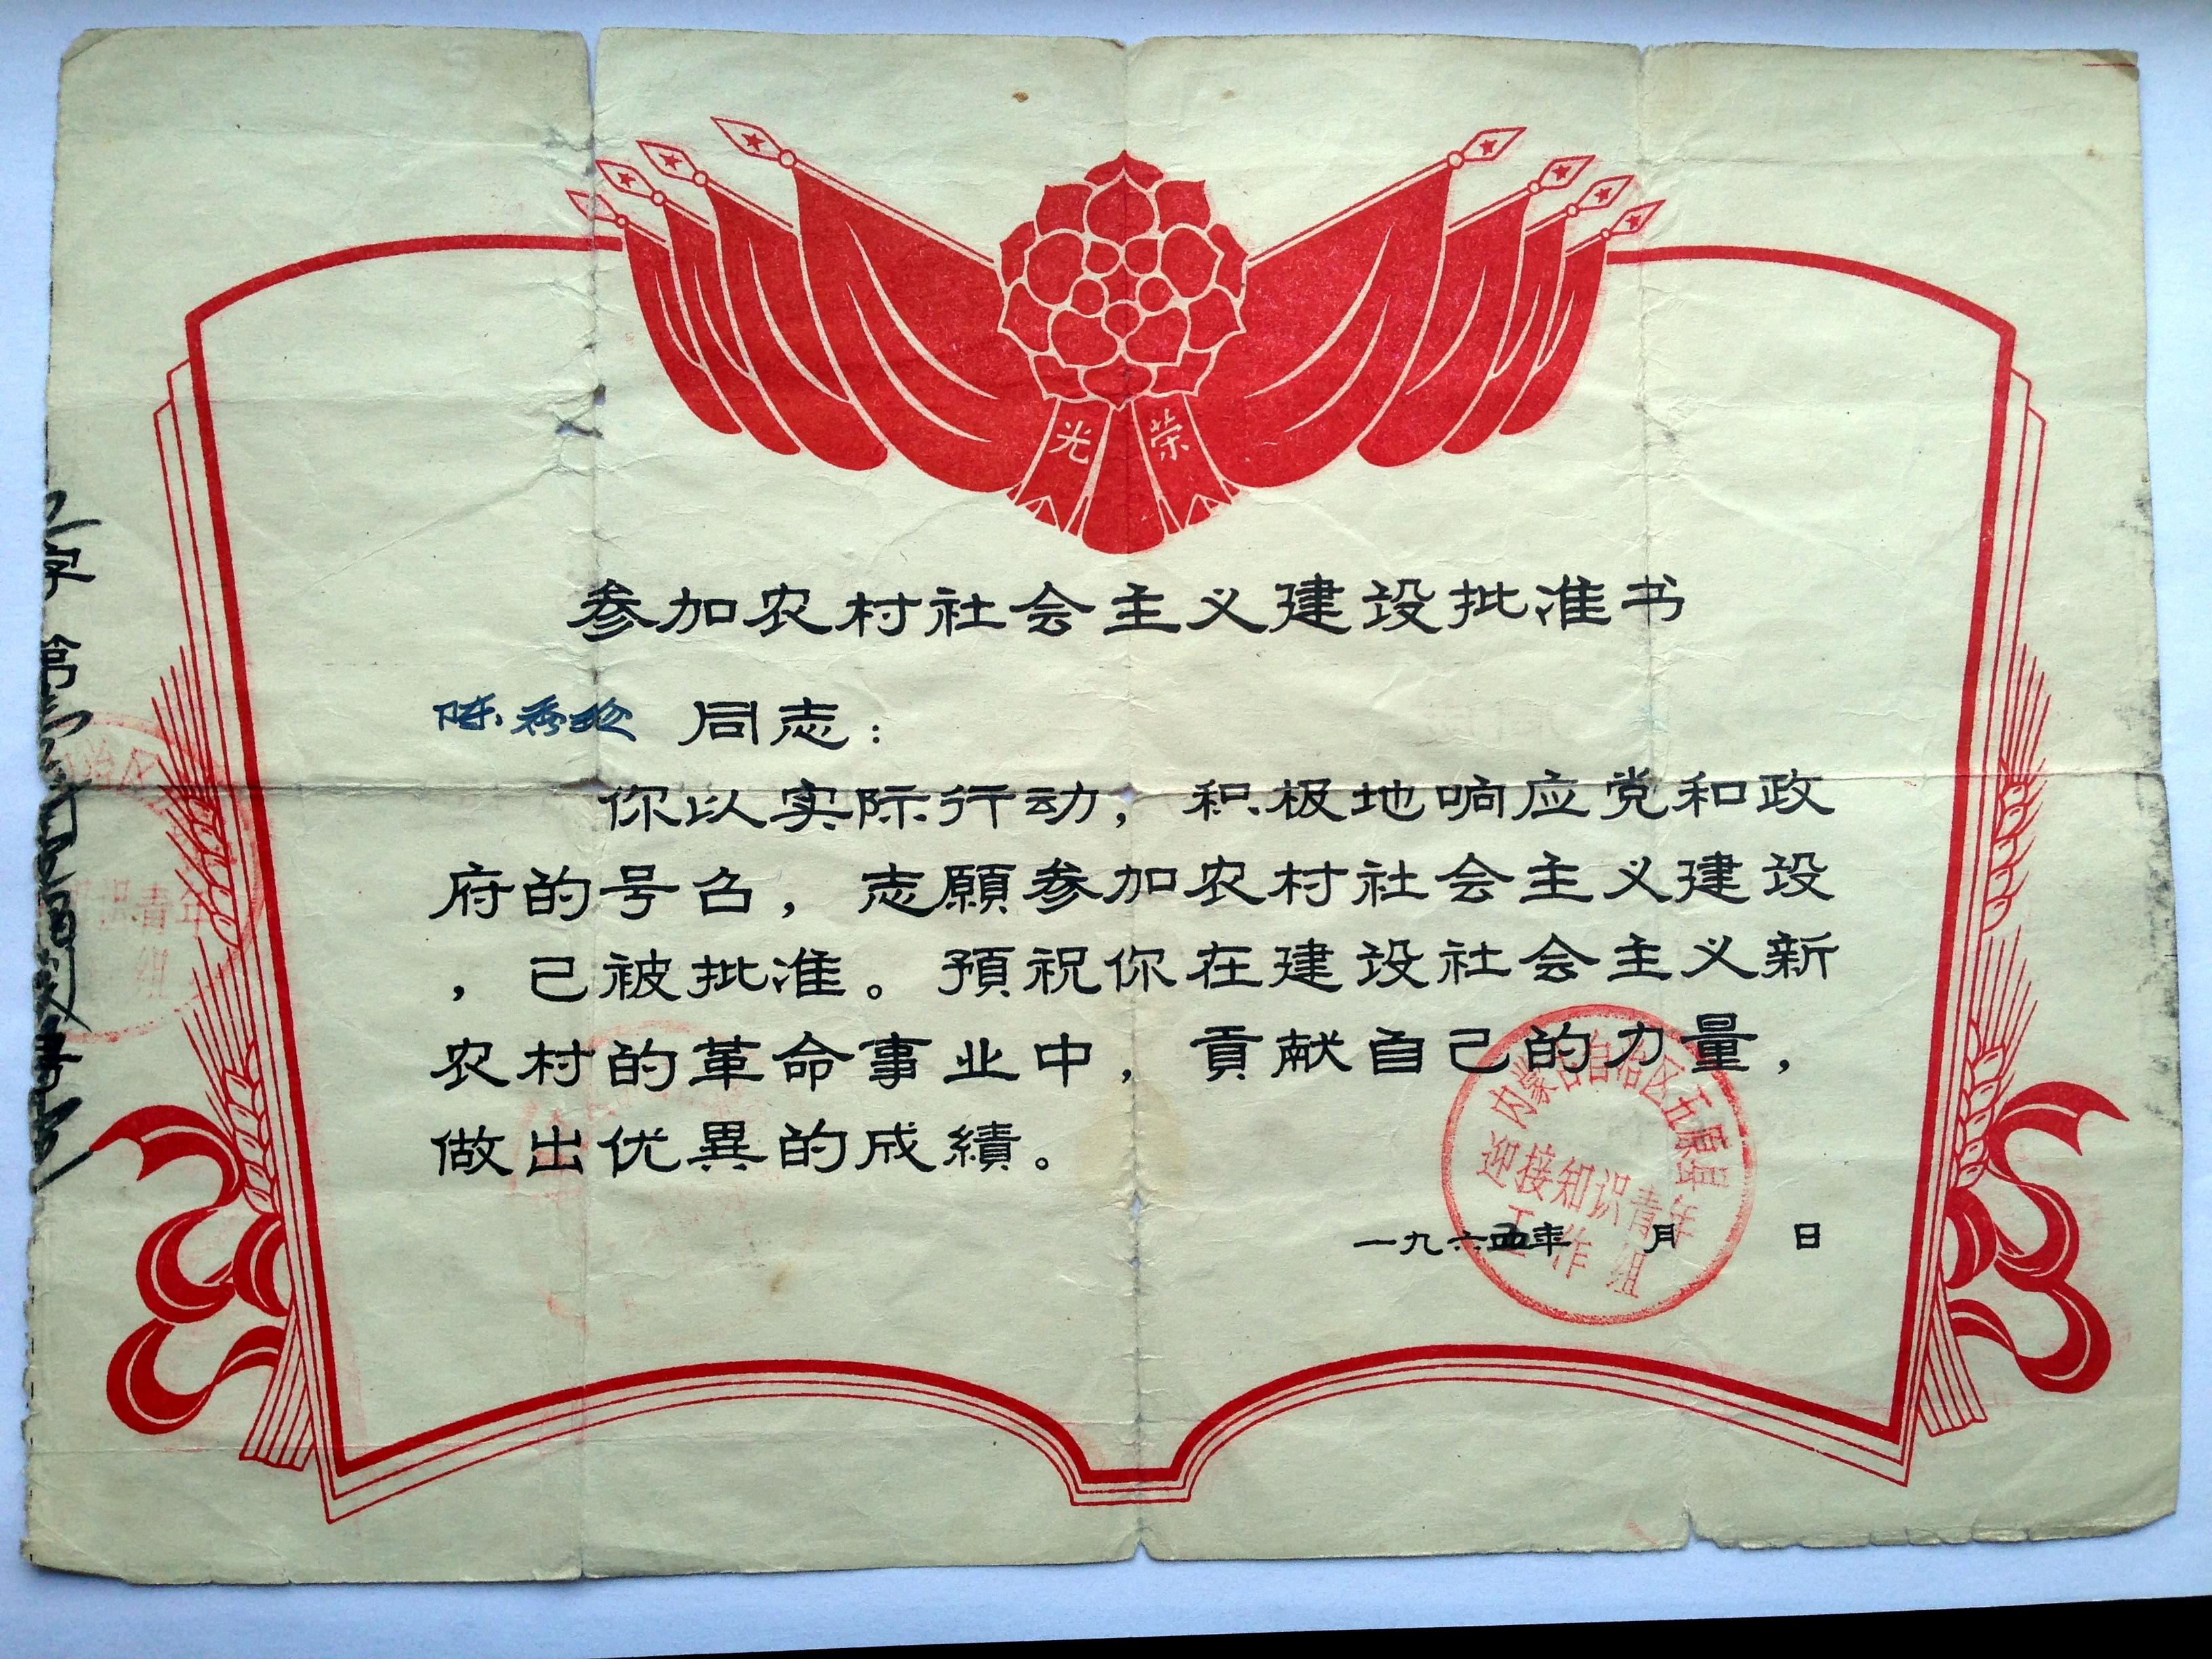 光荣
参加农村社会主义建设批准书
陈秀珍 同志：
你以实际行动，积极地响应党和政
府的号召，志願参加农村社会主义建设
，已被批准。預祝你在建设社会主义新
农村的革命事业中，貢献自己的力量，
做出优異的成績。
内蒙古自治区五原县
迎接知识青年
工作组
一九六五年 月 日
字 第
治区
识青年
组